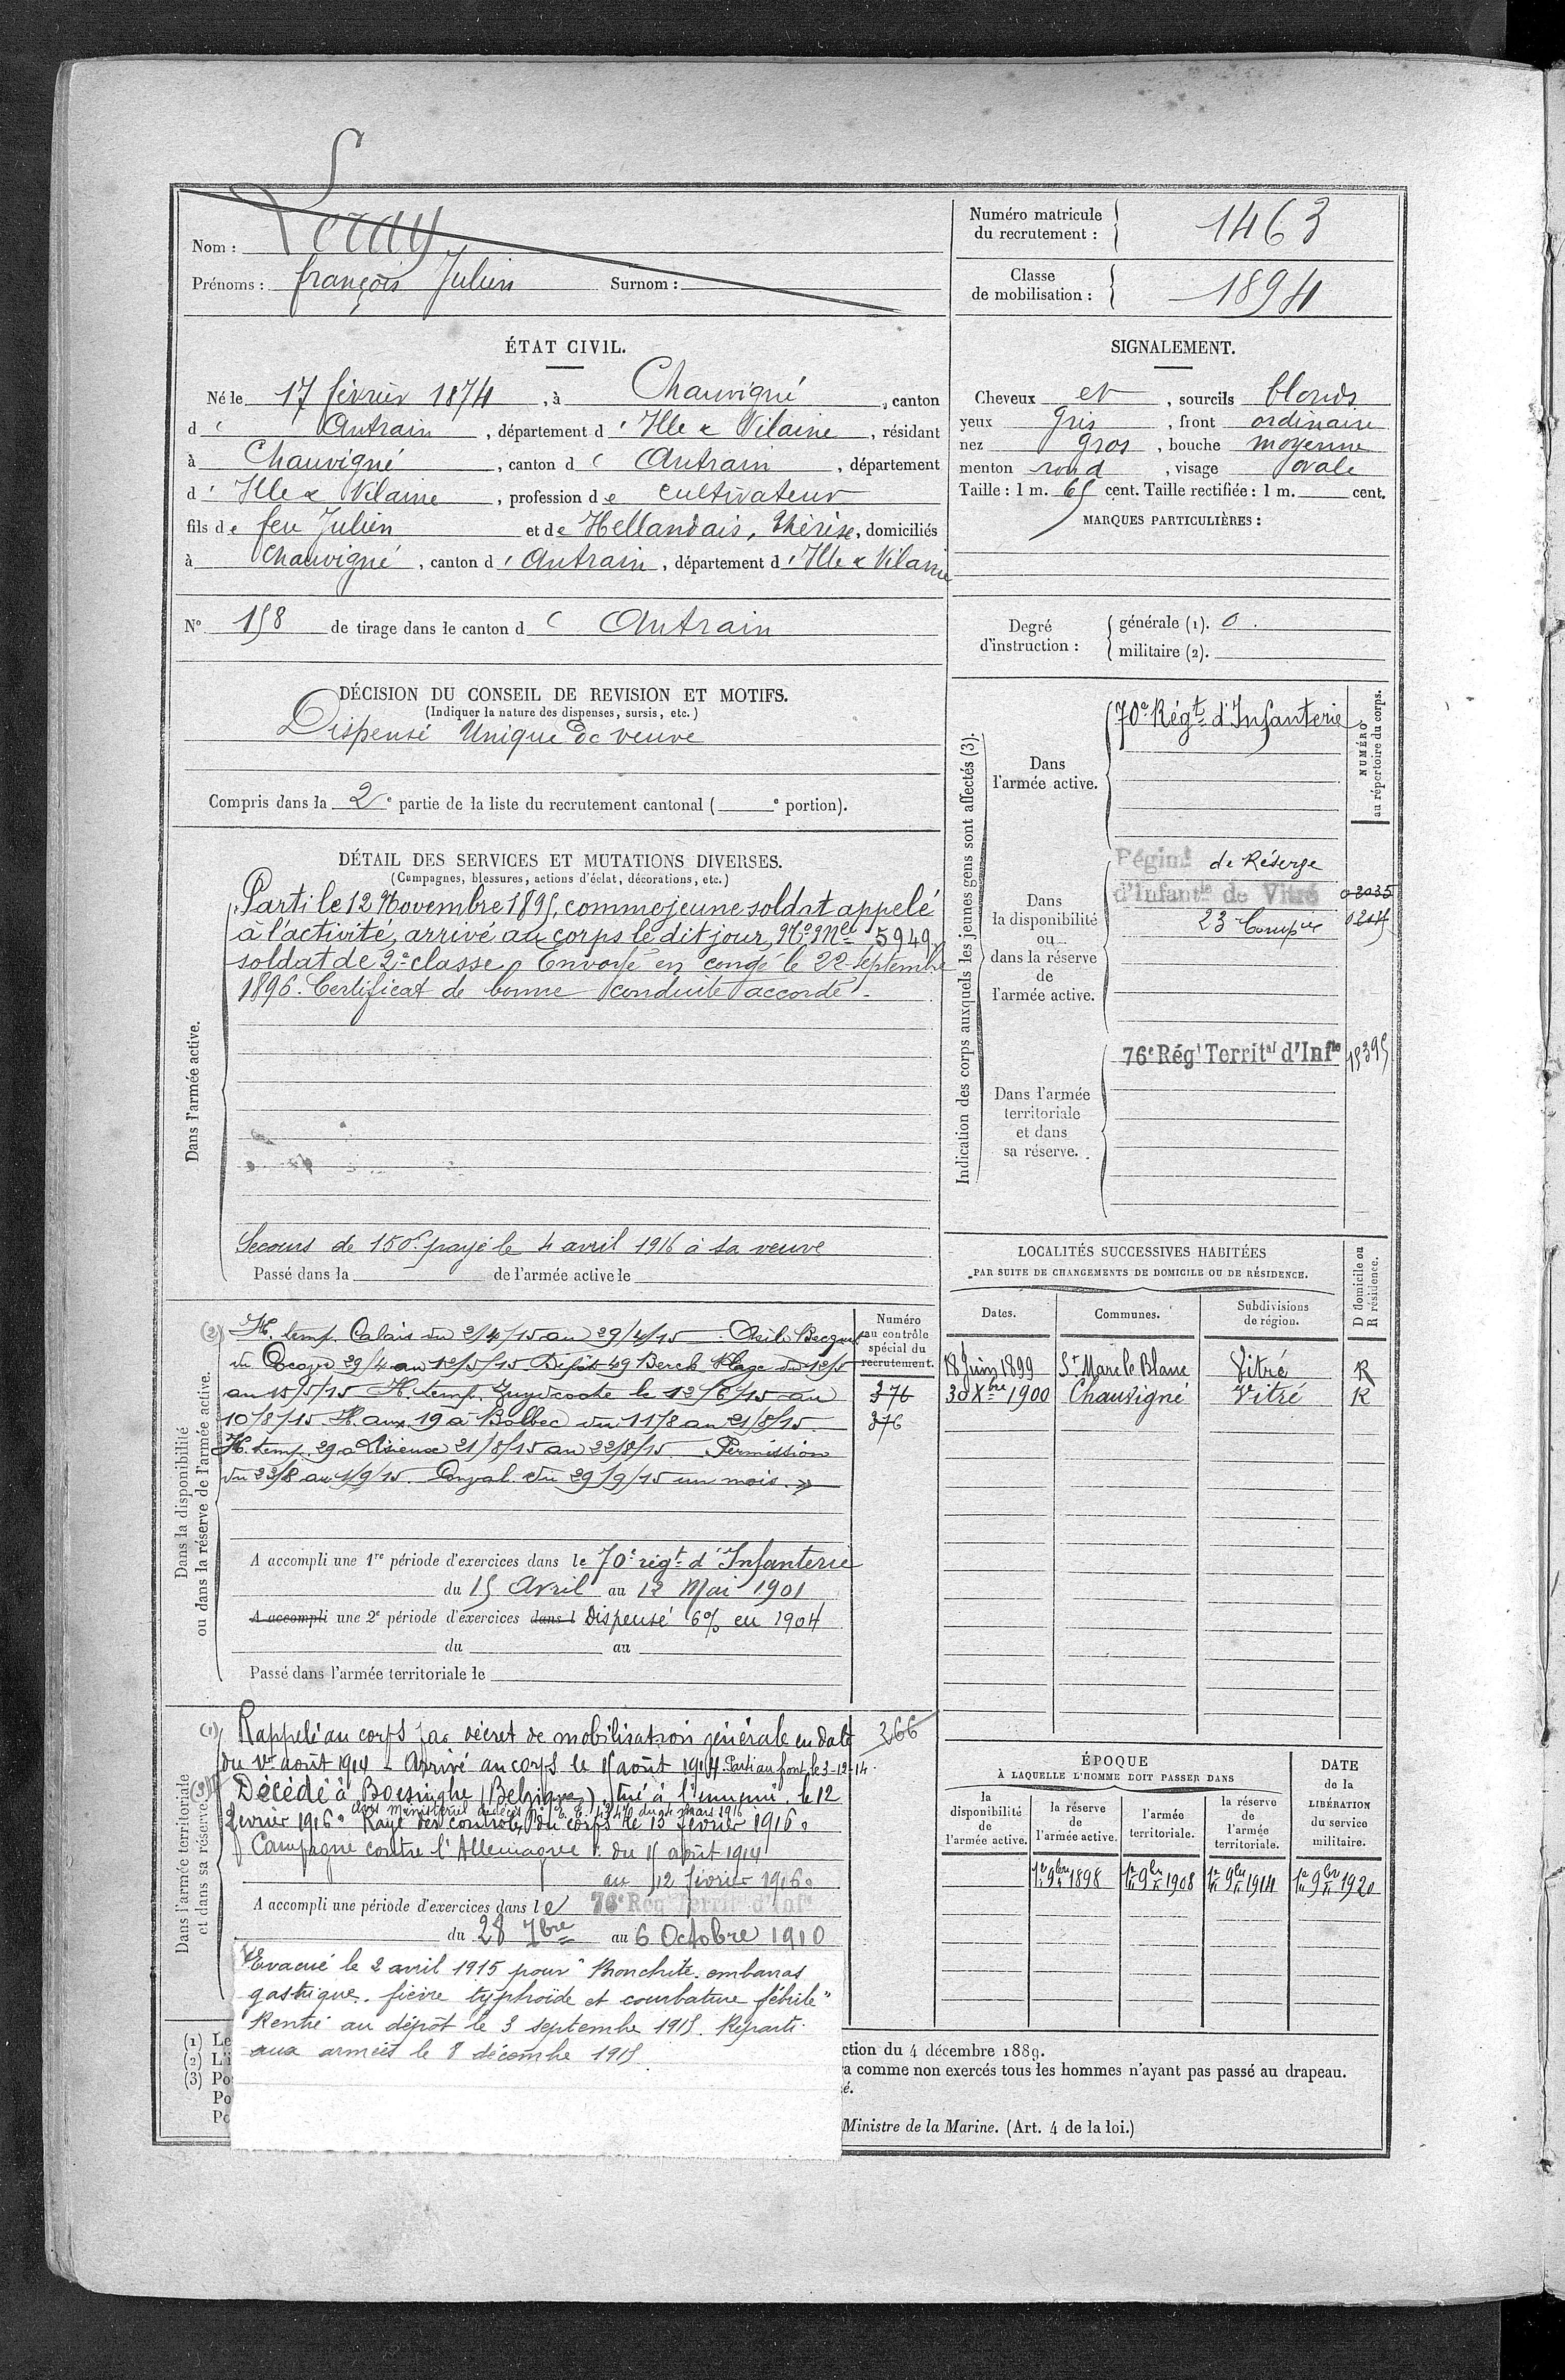 Nom : Leray
Prénoms : françois Julien Surnom :
Numéro matricule du recrutement : 1463
Classe de mobilisation : 1894
ÉTAT CIVIL.
Né le 17 février 1874, à Chauvigné, canton
d' Antrain, département d' Ille & Vilaine, résidant
à Chauvigné, canton d' Antrain, département
d' Ille & Vilaine, profession de cultivateur
fils de feu Julien et de Hellandais, Thérèse, domiciliés
à Chauvigné, canton d' Antrain, département d' Ille & Vilaine
SIGNALEMENT.
Cheveux et, sourcils blonds
yeux gris, front ordinaire
nez gros, bouche moyenne
menton rond, visage ovale
Taille : 1 m. 65 cent. Taille rectifiée : 1 m. cent.
MARQUES PARTICULIÈRES :
N° 158 de tirage dans le canton d' Antrain
Degré d'instruction :
générale (1). 0.
militaire (2).
DÉCISION DU CONSEIL DE REVISION ET MOTIFS.
(Indiquer la nature des dispenses, sursis, etc.)
Dispensé Unique de veuve
Compris dans la 2e partie de la liste du recrutement cantonal ( e portion).
DÉTAIL DES SERVICES ET MUTATIONS DIVERSES.
(Campagnes, blessures, actions d'éclat, décorations, etc.)
Dans l'armée active.
Parti le 12 Novembre 1895, comme jeune soldat appelé
à l'activité, arrivé au corps le dit jour, No Mle 5949,
soldat de 2e classe. Envoyé en congé le 22 septembre
1896. Certificat de bonne conduite accordé.
Secours de 150f payé le 4 avril 1916 à sa veuve
Passé dans la de l'armée active le
Indication des corps auxquels les jeunes gens sont affectés (3).
NUMÉRO au répertoire du corps.
Dans l'armée active.
70e Régt d'Infanterie
Dans la disponibilité ou dans la réserve de l'armée active.
Régimt de Réserve
d'Infantie de Vitré
23 Compie
Dans l'armée territoriale et dans sa réserve.
76e Régt Territal d'Infie 15395
LOCALITÉS SUCCESSIVES HABITÉES
PAR SUITE DE CHANGEMENTS DE DOMICILE OU DE RÉSIDENCE.
Dates. Communes. Subdivisions de région. D domicile ou R résidence.
18 Juin 1899 St Marc le Blanc Vitré R
30 Xbre 1900 Chauvigné Vitré R
Dans la disponibilité ou dans la réserve de l'armée active.
Numéro au contrôle spécial du recrutement.
376
376
(2) H. temp. Calais du 2/4/15 au 29/4/15 Asile
29/4 au 12/5/15. Dépôt 49 Berck Plage du 12/5
au 15/5/15 H. temp. Zuydcoote le 12/6/15 au
10/8/15 H. aux. 19 à Bolbec du 11/8 au 21/8/15.
H. temp. 29 à Lisieux 21/8/15 au 22/8/15 Permission
du 22/8 au 1/9/15. Conval. du 29/9/15 un mois. »
A accompli une 1re période d'exercices dans le 70e régt d'Infanterie
du 15 Avril au 12 Mai 1901
A accompli une 2e période d'exercices dans l Dispensé 6% en 1904
du au
Passé dans l'armée territoriale le
Dans l'armée territoriale et dans sa réserve.
(1) Rappelé au corps par décret de mobilisation générale en date 366
du 1er août 1914 - Arrivé au corps le 15 août 1914. Parti au front le 3-12-14.
Décédé à Boesinghe (Belgique), tué à l'ennemi, le 12
Avis Ministériel de décès 4 mars 1916
février 1916. Rayé des contrôles du corps le 13 février 1916.
Campagne contre l'Allemagne : du 15 août 1914
au 12 février 1916.
A accompli une période d'exercices dans le 76e Régt Territal d'Infie
du 28 7bre au 6 Octobre 1910
Evacué le 2 avril 1915 pour "Bronchite. embarras
gastrique. fièvre typhoïde et courbature fébrile"
Rentré au dépôt le 3 septembre 1915. Réparti
aux armées le 8 décembre 1915.
ÉPOQUE
À LAQUELLE L'HOMME DOIT PASSER DANS
la disponibilité de l'armée active.
la réserve de l'armée active.
l'armée territoriale.
la réserve de l'armée territoriale.
DATE de la LIBÉRATION du service militaire.
1er 9bre 1898 1er 9bre 1908 1er 9bre 1914 1er 9bre 1920
(1) Le
(2) L'i
(3) Po
Po
Po
ction du 4 décembre 1889.
a comme non exercés tous les hommes n'ayant pas passé au drapeau.
é.
Ministre de la Marine. (Art. 4 de la loi.)